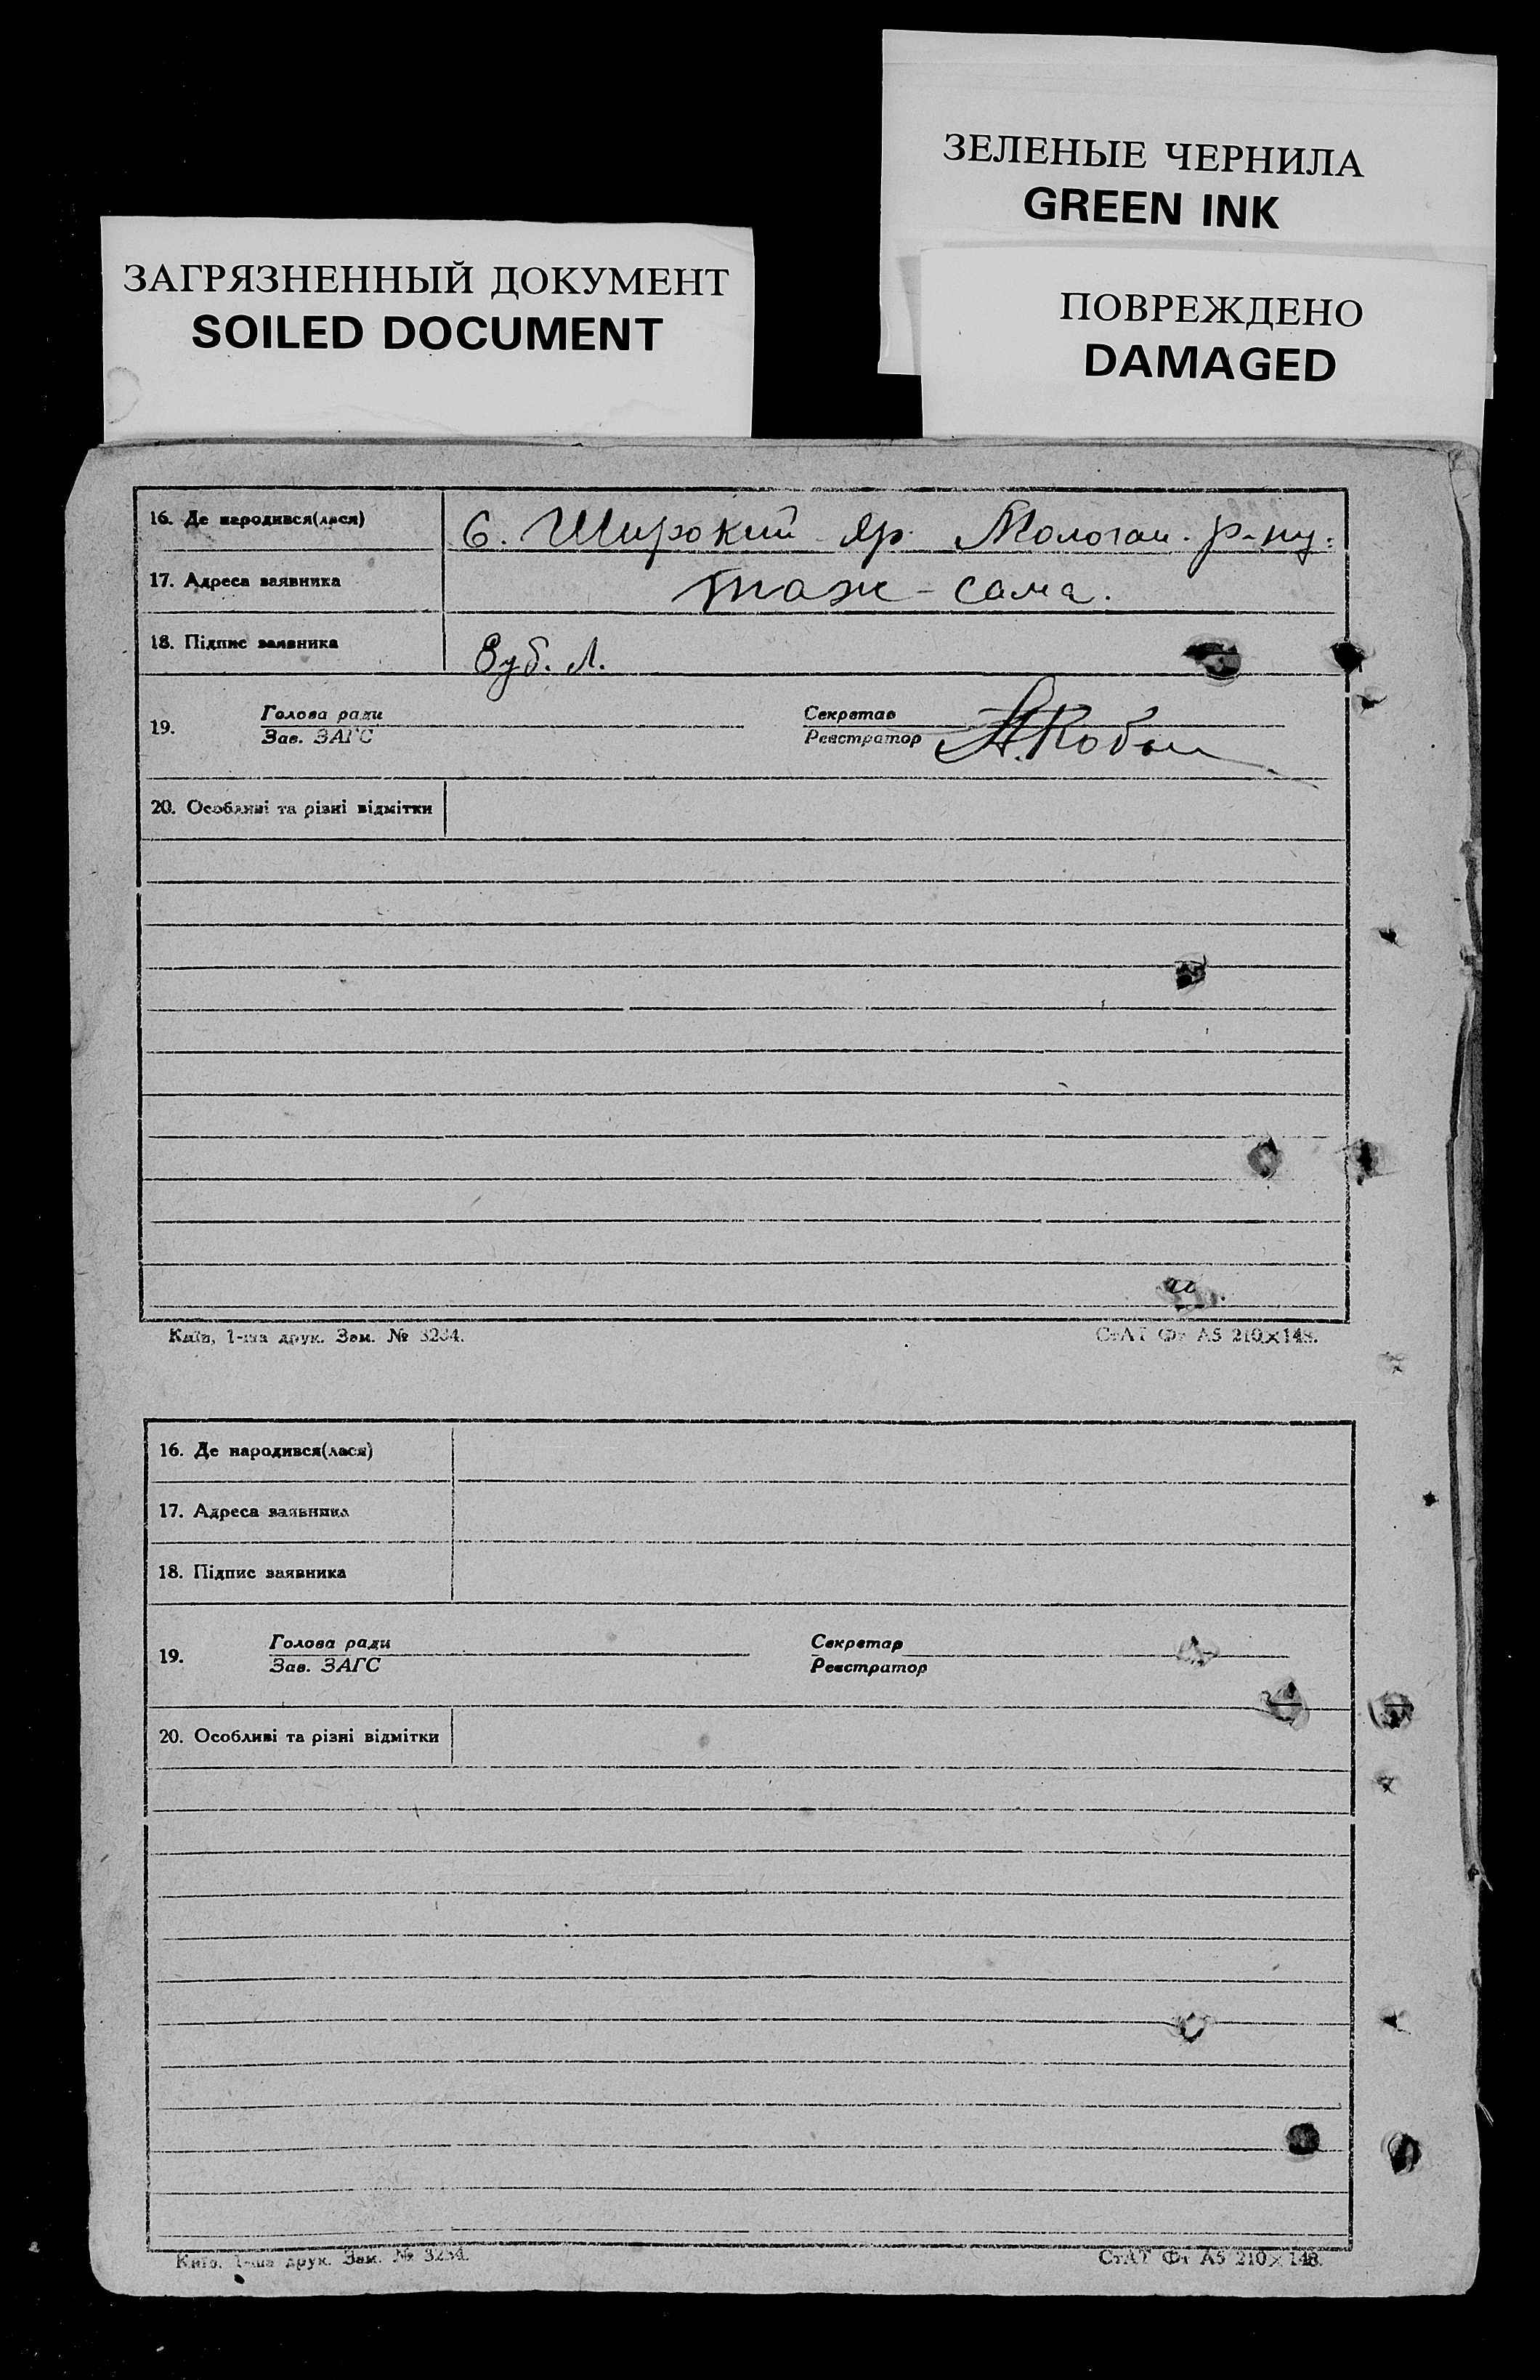 ЗЕЛЕНЫЕ ЧЕРНИЛА
GREEN INK
ЗАГРЯЗНЕННЫЙ ДОКУМЕНТ
SOILED DOCUMENT
ПОВРЕЖДЕНО
DAMAGED
16. Де народився(лася) С. Широкий Яр р-ну.
17. Адреса заявника таж-сама.
18. Підпис заявника Зуб. Л.
19. Голова ради Секретар
Зав. ЗАГС Реєстратор
20. Особливі та різні відмітки
Київ, 1-ша друк. Зам. № 3234. СтАТ Фт А5 210×148.
16. Де народився(лася)
17. Адреса заявника
18. Підпис заявника
19. Голова ради Секретар
Зав. ЗАГС Реєстратор
20. Особливі та різні відмітки
Київ, 1-ша друк. Зам. № 3234. СтАТ Фт А5 210×148.